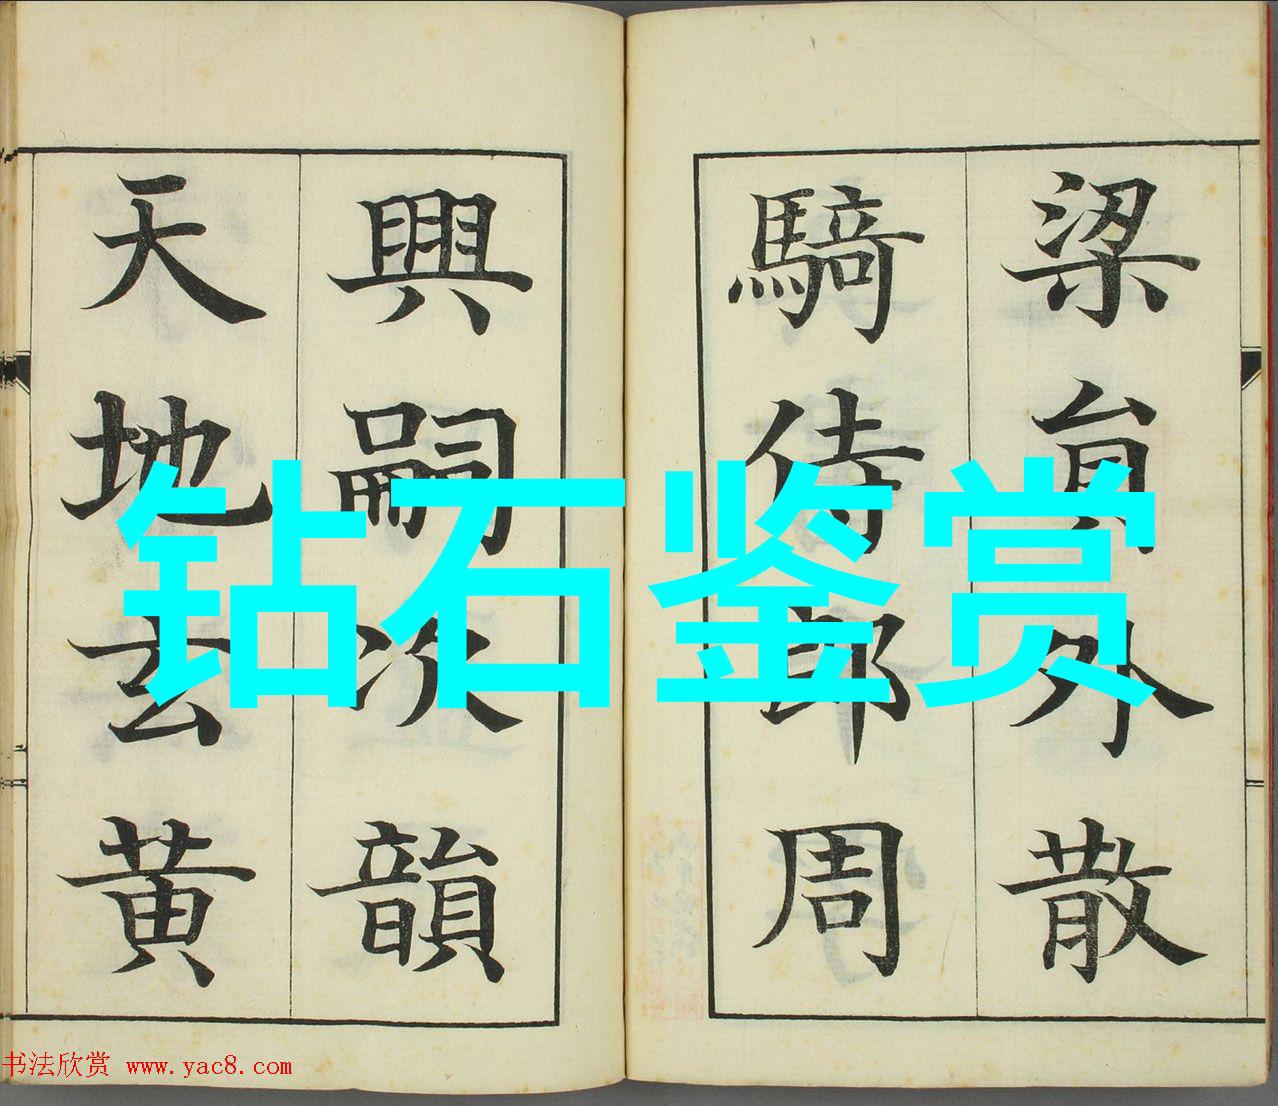 梁貟外散
騎侍郎周
興嗣次韻
天地玄黄
钻石鉴赏
书法欣赏 www.yac8.com